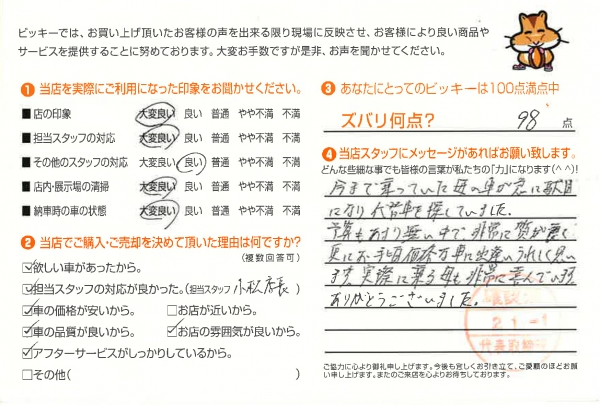 ビッキーでは、お買い上げ頂いたお客様の声を出来る限り現場に反映させ、お客様により良い商品や
サービスを提供することに努めております。大変お手数ですが是非、お声を聞かせてください。
❶ 当店を実際にご利用になった印象をお聞かせください。
■ 店の印象 大変良い 良い 普通 やや不満 不満
■ 担当スタッフの対応 大変良い 良い 普通 やや不満 不満
■ その他のスタッフの対応 大変良い 良い 普通 やや不満 不満
■ 店内・展示場の清掃 大変良い 良い 普通 やや不満 不満
■ 納車時の車の状態 大変良い 良い 普通 やや不満 不満
❷ 当店でご購入・ご売却を決めて頂いた理由は何ですか?
(複数回答可)
☑欲しい車があったから。
☑担当スタッフの対応が良かった。(担当スタッフ 小松店長)
☑車の価格が安いから。 □お店が近いから。
☑車の品質が良いから。 ☑お店の雰囲気が良いから。
☑アフターサービスがしっかりしているから。
□その他( )
❸ あなたにとってのビッキーは100点満点中
ズバリ何点? 98 点
❹ 当店スタッフにメッセージがあればお願い致します。
どんな些細な事でも皆様の言葉が私たちの「力」になります(^^)!
今まで乗っていた母の車が急に駄目
になり大至車を探していました。
予算もあまり無い中で非常に質が良く
更にお手頃価格な車に出逢いうれしく思い
ます。実際に乗る母も非常に喜んでいます
ありがとうございました。
確認済
21.-1
代表取締
ご協力に心より御礼申し上げます。今後も宜しくお引き立て、ご愛顧のほどお願
い申し上げます。またのご来店を心よりお待ちしております。